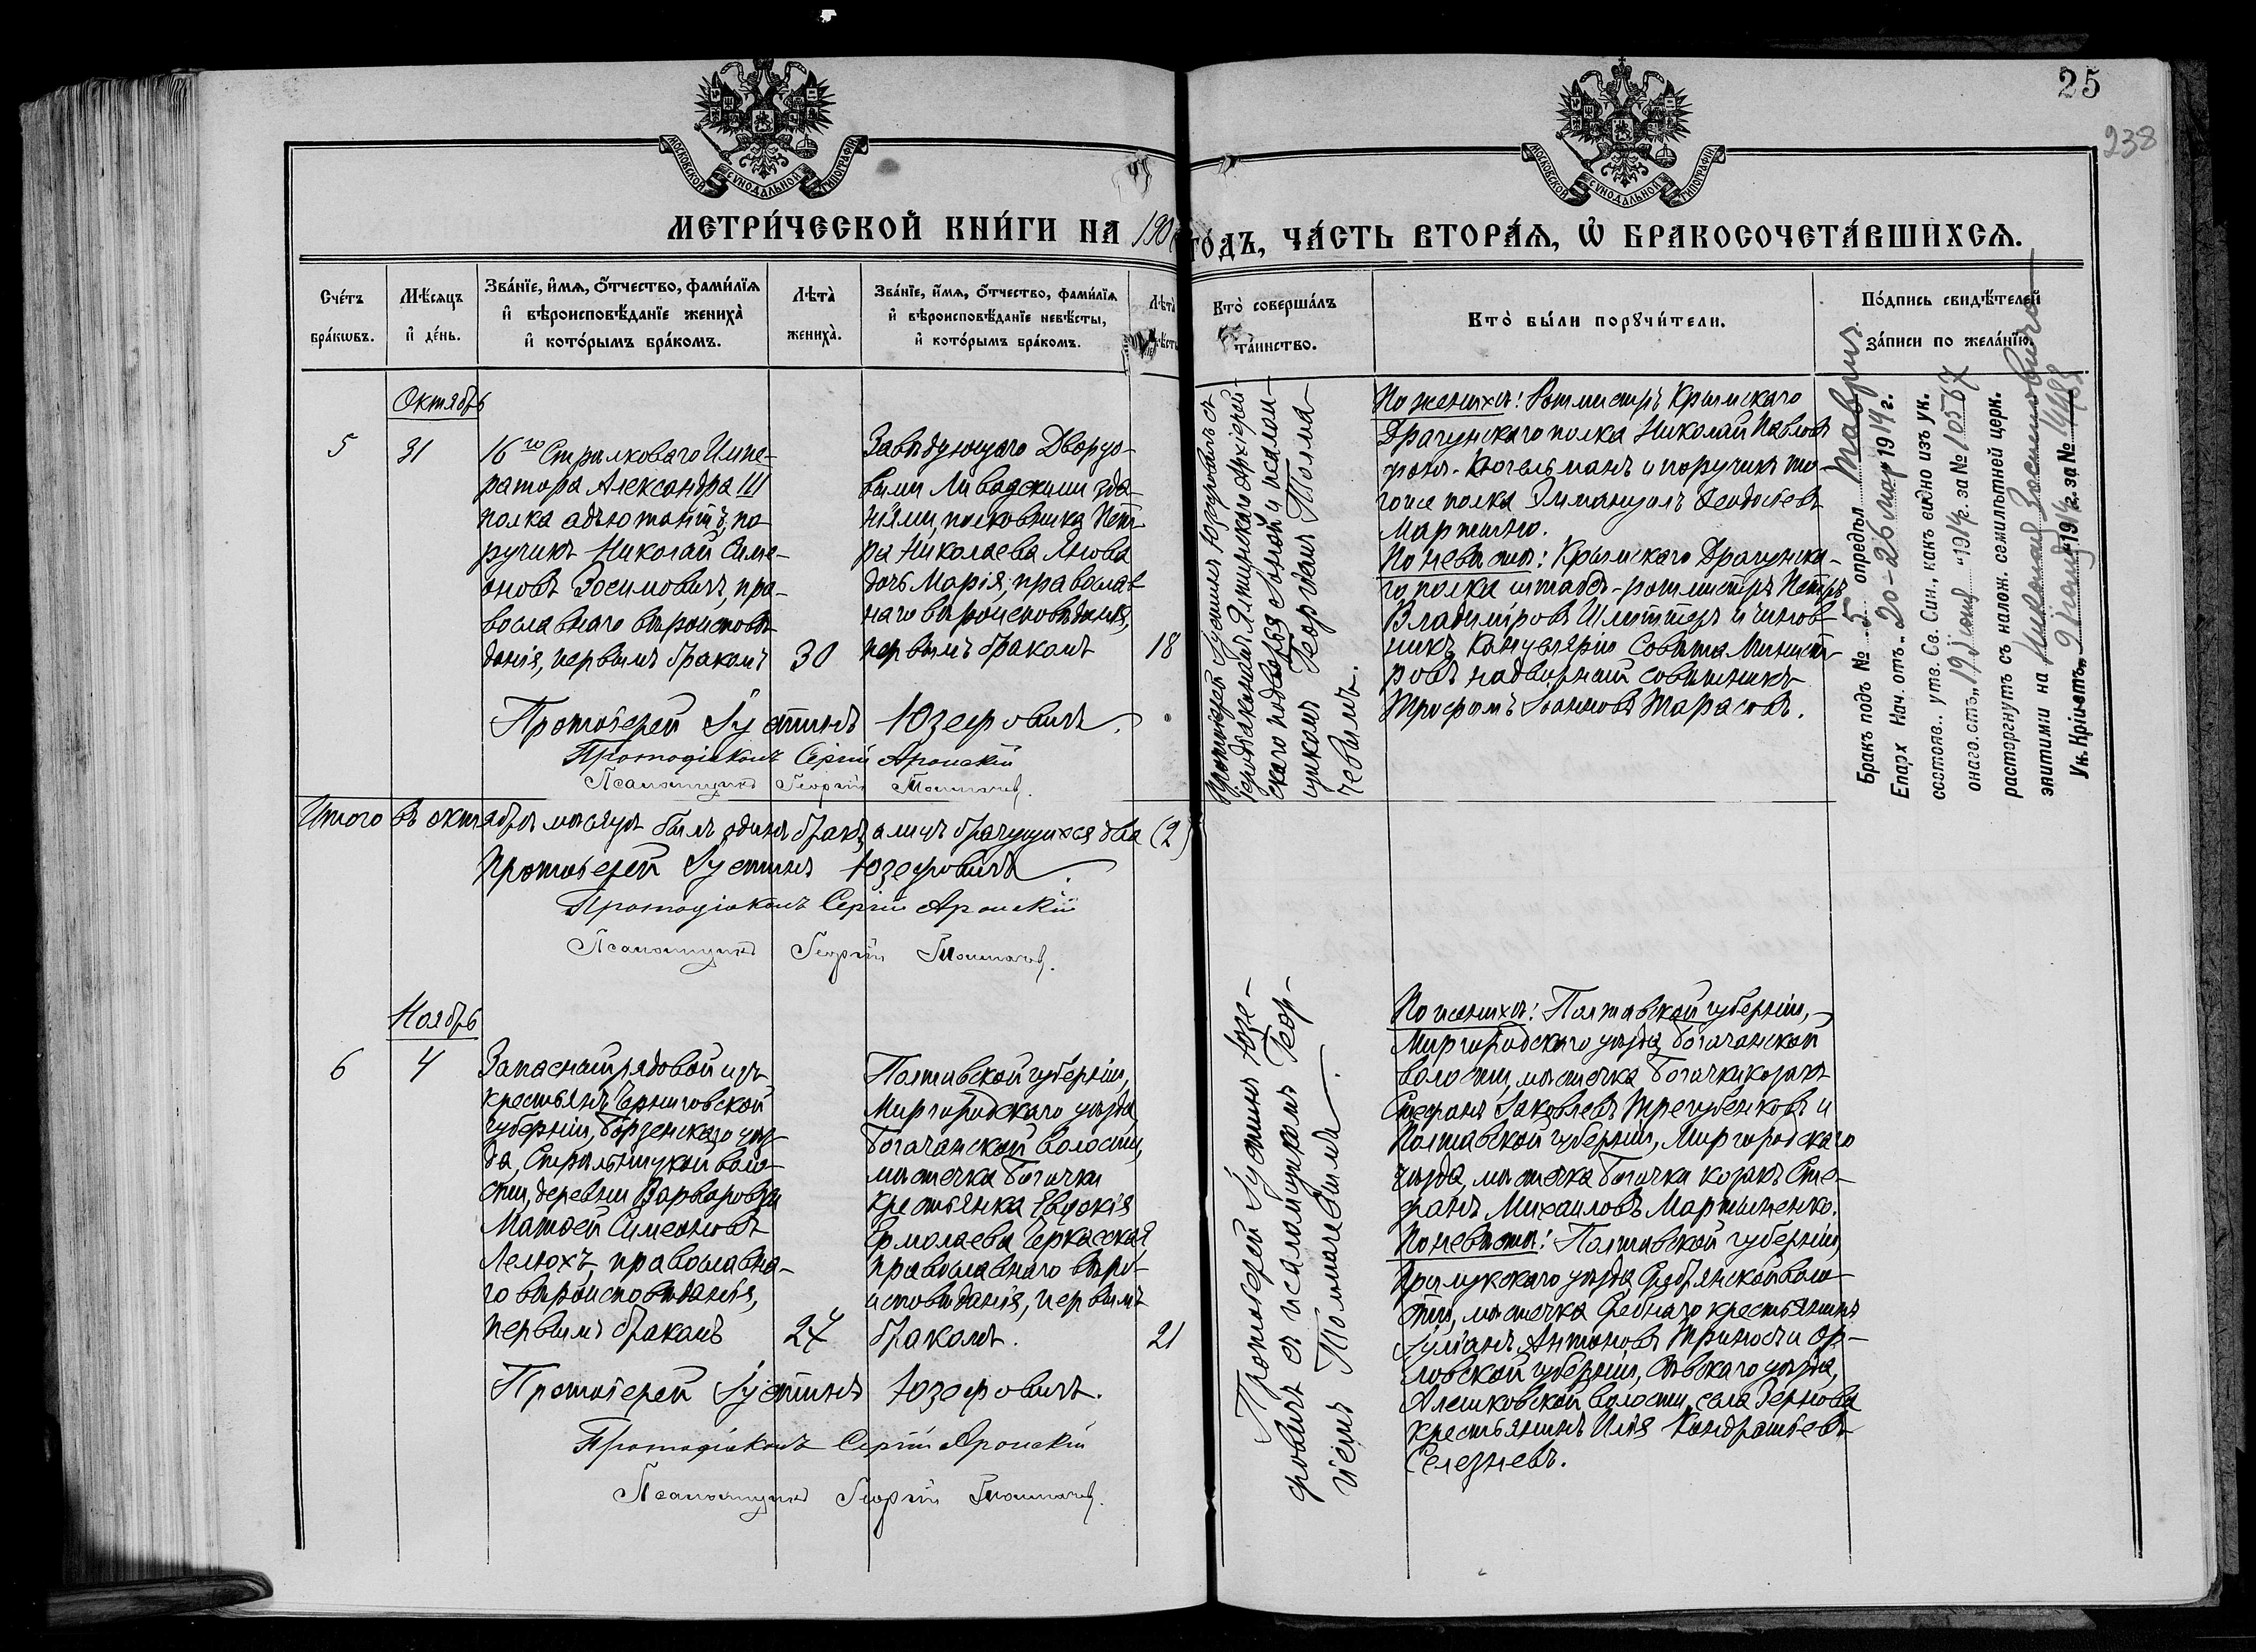 25
238
МОСКОВСКОЙ СѴНОДАЛЬНОЙ ТИПОГРАФІИ
МОСКОВСКОЙ СѴНОДАЛЬНОЙ ТИПОГРАФІИ
МЕТРИ́ЧЕСКОЙ КНИ́ГИ НА 190
ГО́ДЪ, ЧА́СТЬ ВТОРА́Ѧ, Ѡ҆ БРАКОСОЧЕТА́ВШИХСѦ.
Сче́тъ
бра́кѡвъ.
Мѣ́сѧцъ
и҆ де́нь.
Зва́нїе, и҆́мѧ, ѻ҆́тчество, фами́лїѧ
и҆ вѣроисповѣ́данїе жениха̀
и҆ кото́рымъ бра́комъ.
Лѣта̀
жениха̀.
Зва́нїе, и҆́мѧ, ѻ҆́тчество, фами́лїѧ
и҆ вѣроисповѣ́данїе невѣ́сты,
и҆ кото́рымъ бра́комъ.
Лѣта̀
Кто̀ соверша́лъ
та́инство.
Кто̀ бы́ли порꙋчи́тели.
По́дпись свидѣ́телей
за́писи по жела́нїю.
Октябрь
5
31
16го Стрѣлковаго Импе-
ратора Александра III
полка адъютантъ, по-
ручикъ Николай Симе-
оновъ Зосимовичъ, пра-
вославнаго вѣроисповѣ-
данія, первымъ бракомъ
30
Завѣдующаго Дворцо-
выми Ливадскими зда-
ніями, полковника Пет-
ра Николаева Янова
дочь Марія, православ-
наго вѣроисповѣданія,
первымъ бракомъ
18
Протоіерей Іустинъ Юзефовичъ
іеродіакономъ Ялтинскаго Архіерей-
скаго подворья и псалом-
щикомъ Георгіемъ Толма-
чевымъ.
По женихѣ: Ротмистръ Крымскаго
Драгунскаго полка Николай Павловъ
фонъ-Кюгельманъ и поручикъ то-
гоже полка Эммануилъ Ѳеодосіевъ
Мартино.
По невѣстѣ: Крымскаго Драгунска-
го полка штабсъ-ротмистръ Петръ
Владиміровъ Шлиттеръ и чинов-
никъ Канцеляріи Совѣта Минист-
ровъ надворный совѣтникъ
Трофимъ Іоанновъ Тарасовъ.
Бракъ подъ № 5 опредѣл. Таврич.
Епарх Нач. отъ „20-26 мар 1914 г.
состояв.. утв. Св. Син., какъ видно изъ ук.
онаго. отъ „19 іюня “ 1914 г. за № 10567
расторгнутъ съ налож. семилѣтней церк.
эпитиміи на Николая Зосимовича
Ук. Кр. отъ „ 9 “ 1914 г. за № 14483
Протоіерей Іустинъ Юзефовичъ.
Протодіаконъ Сергій Аронскій
Псаломщикъ Георгій Толмачевъ.
Итого въ октябрѣ мѣсяцѣ былъ одинъ бракъ, а лицъ брачущихся два (2)
Протоіерей Іустинъ Юзефовичъ.
Протодіаконъ Сергій Аронскій
Псаломщикъ Георгій Толмачевъ.
Ноябрь
6
4
Запасный рядовой изъ
крестьянъ Черниговской
губерніи, Борзенскаго уѣз-
да, Стрѣльницкой воло-
сти, деревни Варваровки
Матѳей Симеоновъ
Лелюхъ, православна-
го вѣроисповѣданія,
первымъ бракомъ
27
Полтавской губерніи,
Миргородскаго уѣзда
Богачанской волости,
мѣстечка Богачки
крестьянка Евдокія
Ермолаева Черкасская
православнаго вѣро-
исповѣданія, первымъ
бракомъ.
21
Протоіерей Іустинъ Юзе-
фовичъ съ псаломщикомъ Геор-
гіемъ Толмачевымъ.
По женихѣ: Полтавской губерніи,
Миргородскаго уѣзда, Богачанской
волости, мѣстечка Богачки козакъ
Стефанъ Іаковлевъ Трегубенковъ и
Полтавской губерніи, Миргородскаго
уѣзда, мѣстечка Богачки козакъ Сте-
фанъ Михаиловъ Мартыненко.
По невѣстѣ: Полтавской губерніи,
Прилукскаго уѣзда Сребрянской воло-
сти, мѣстечка Сребнаго крестьянинъ
Іуліанъ Антоновъ Триносъ и Ор-
ловской губерніи, Сѣвскаго уѣзда,
Алешковской волости, села Зернова
крестьянинъ Илія Кондратьевъ
Селезневъ.
Протоіерей Іустинъ Юзефовичъ.
Протодіаконъ Сергій Аронскій
Псаломщикъ Георгій Толмачевъ.